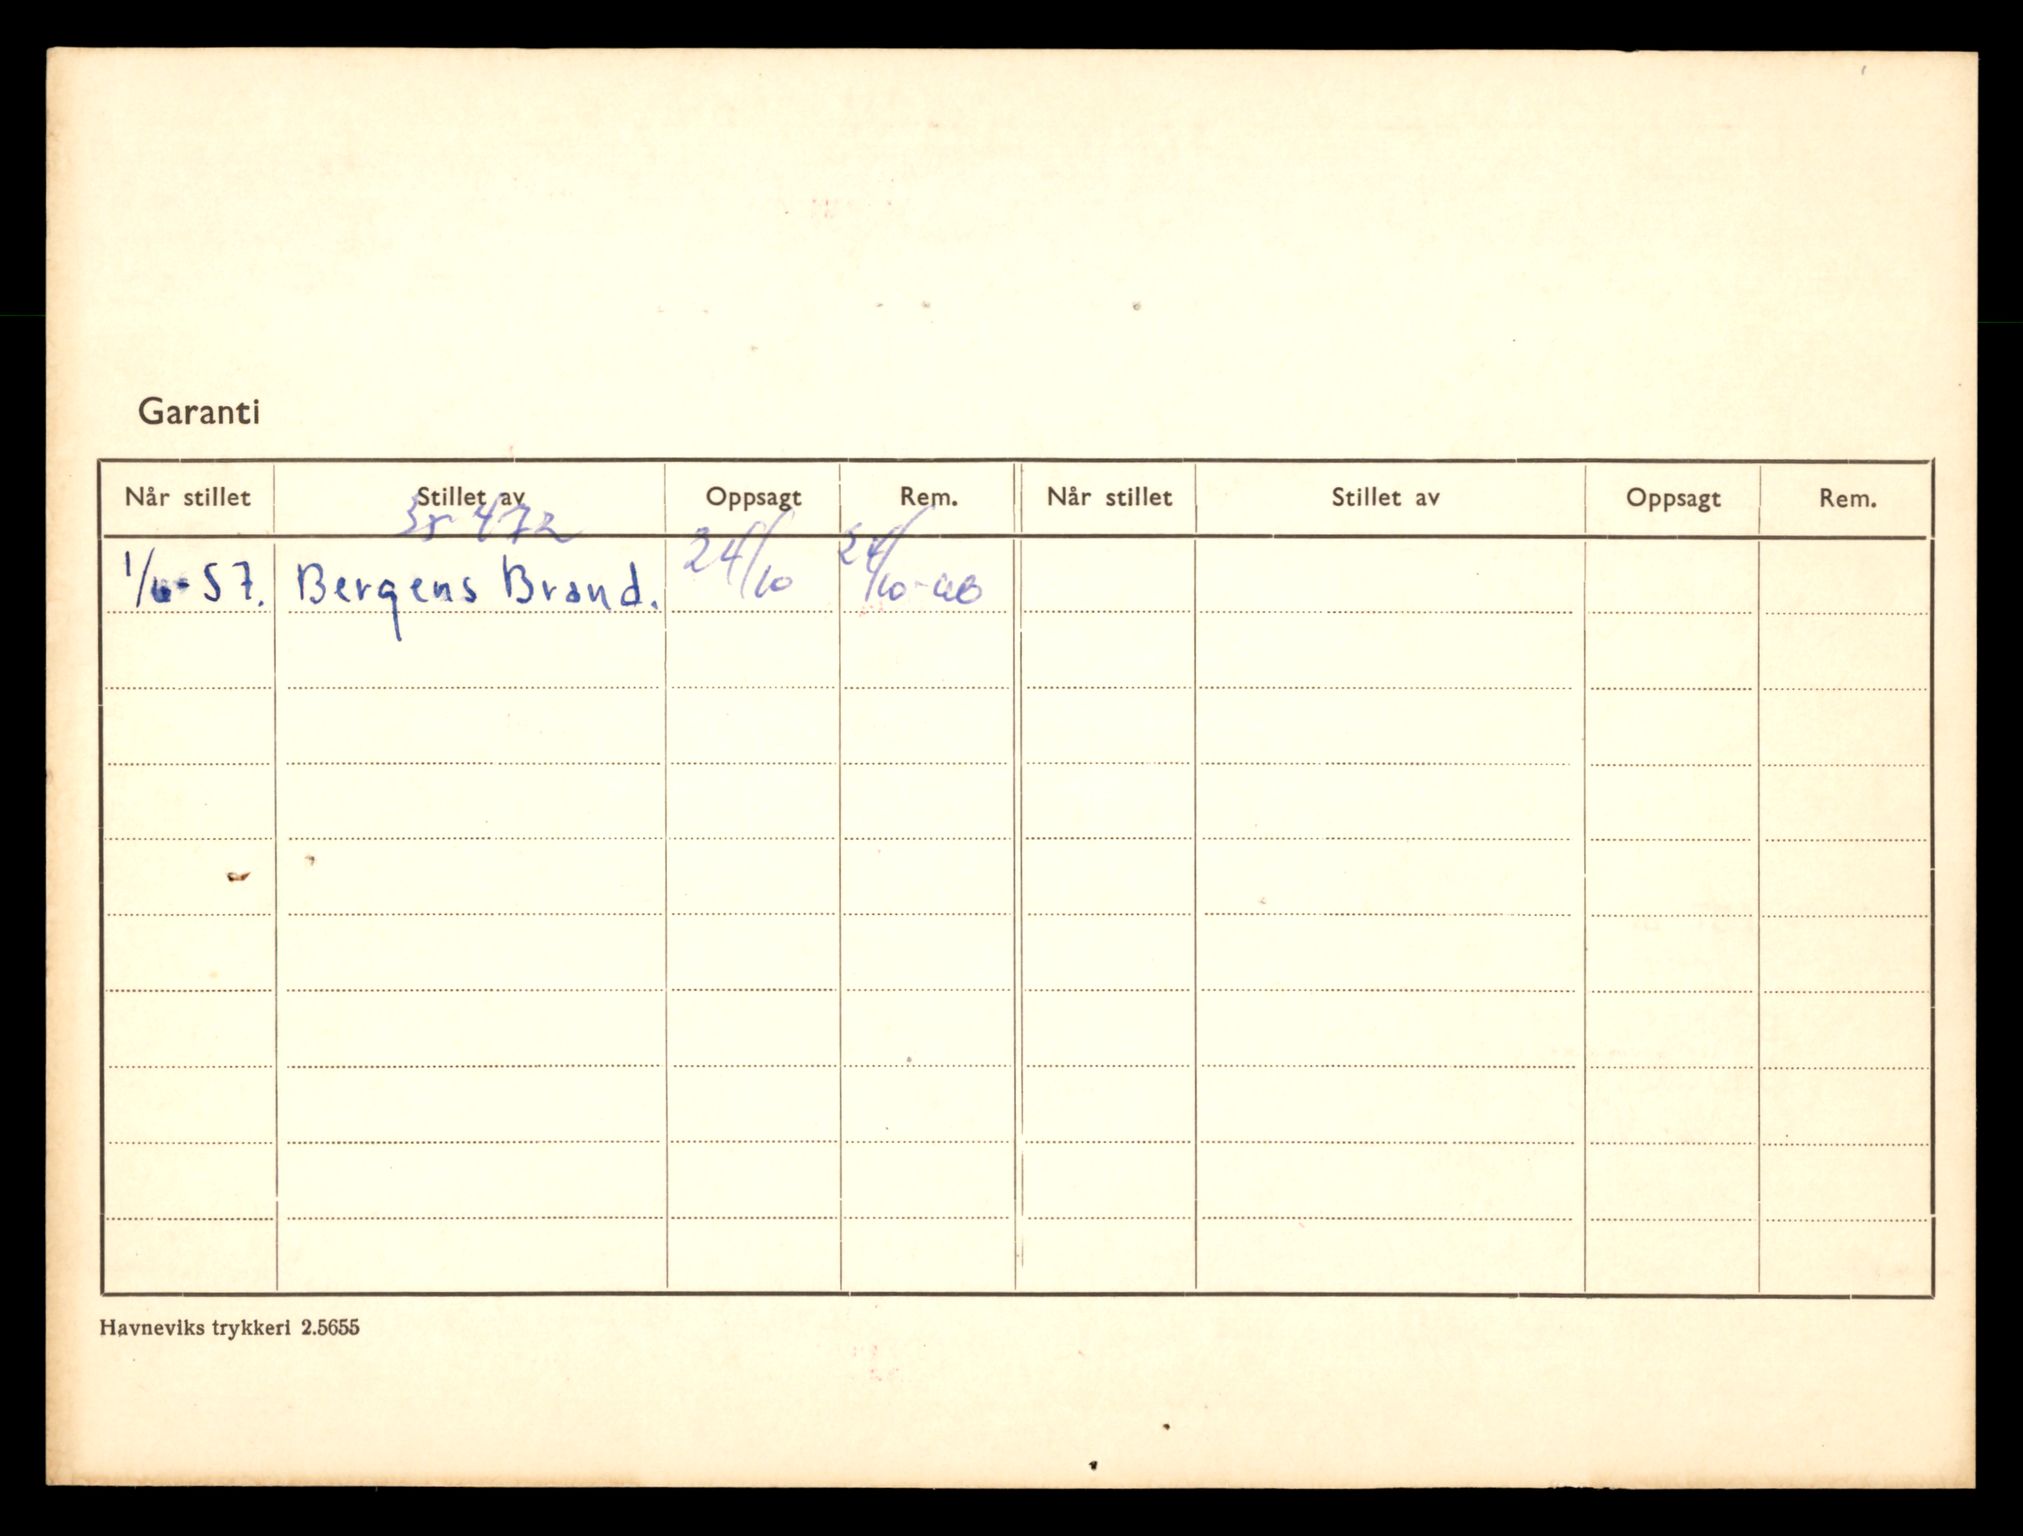 Garanti
Når stillet Stillet av Oppsagt Rem. Når stillet Stillet av Oppsagt Rem.
472
1/6-57. Bergens Brand. 24/10 24/10-60
Havneviks trykkeri 2.5655